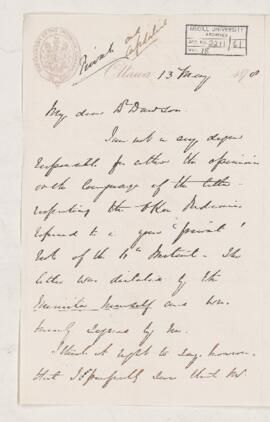 McGILL UNIVERSITY
ARCHIVES
ACC. NO. 2211 / 61
REF. 18
Private and
Ottawa 13 May
My dear Dr Dawson
I am not in any degree
responsible for either the opinions
or the language of the letter
respecting the
referred to in your "private"
note of the 11th Instant. The
letter was dictated by the
Minister himself and was
merely signed by me.
I think it right to say, however,
that I